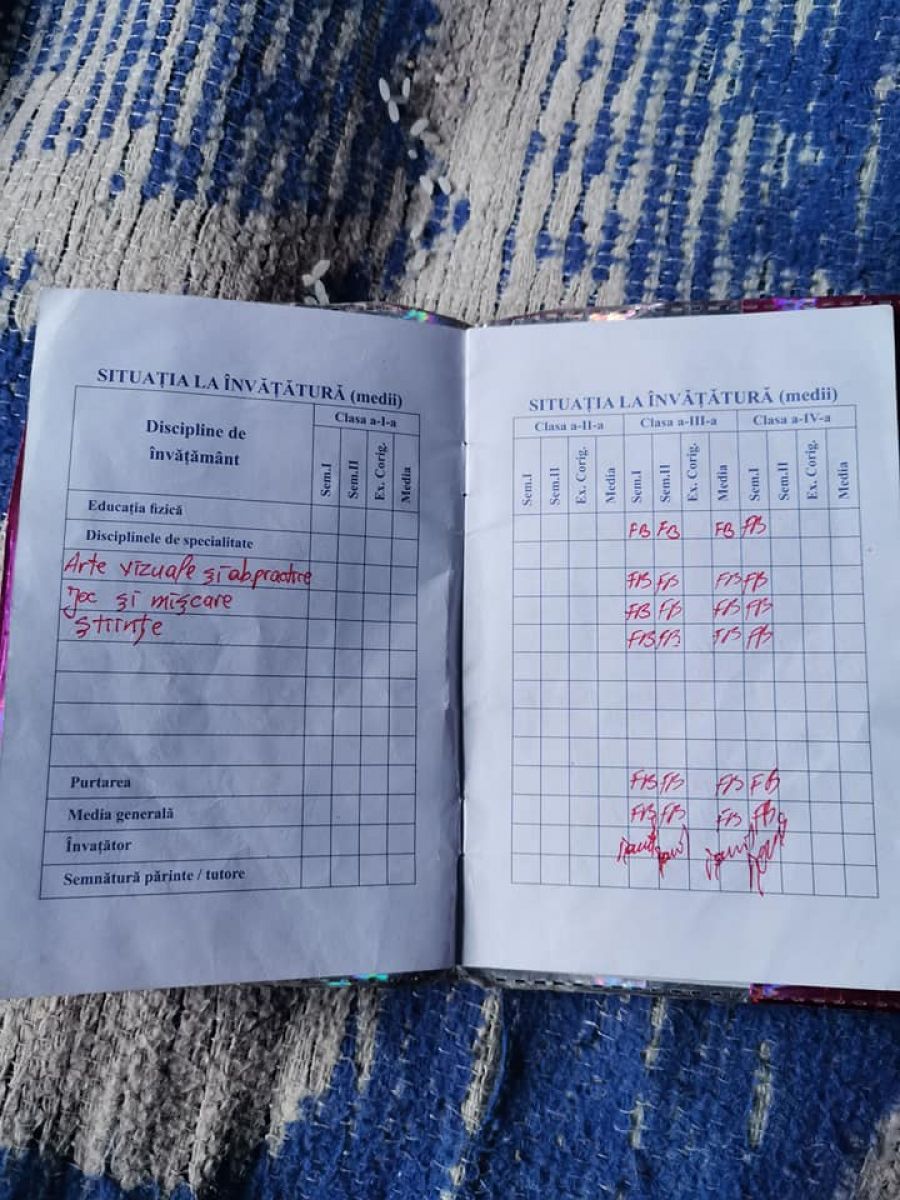 SITUAȚIA LA ÎNVĂȚĂTURĂ (medii)
Discipline de învățământ
Clasa a-I-a
Sem.I Sem.II Ex. Corig. Media
Educația fizică
Disciplinele de specialitate
Arte vizuale și ab.practice
Joc și mișcare
Științe
Purtarea
Media generală
Învațător
Semnătură părinte / tutore
SITUAȚIA LA ÎNVĂȚĂTURĂ (medii)
Clasa a-II-a Clasa a-III-a Clasa a-IV-a
Sem.I Sem.II Ex. Corig. Media Sem.I Sem.II Ex. Corig. Media Sem.I Sem.II Ex. Corig. Media
FB FB FB FB
FB FB FB FB
FB FB FB FB
FB FB FB FB
FB FB FB FB
FB FB FB FB